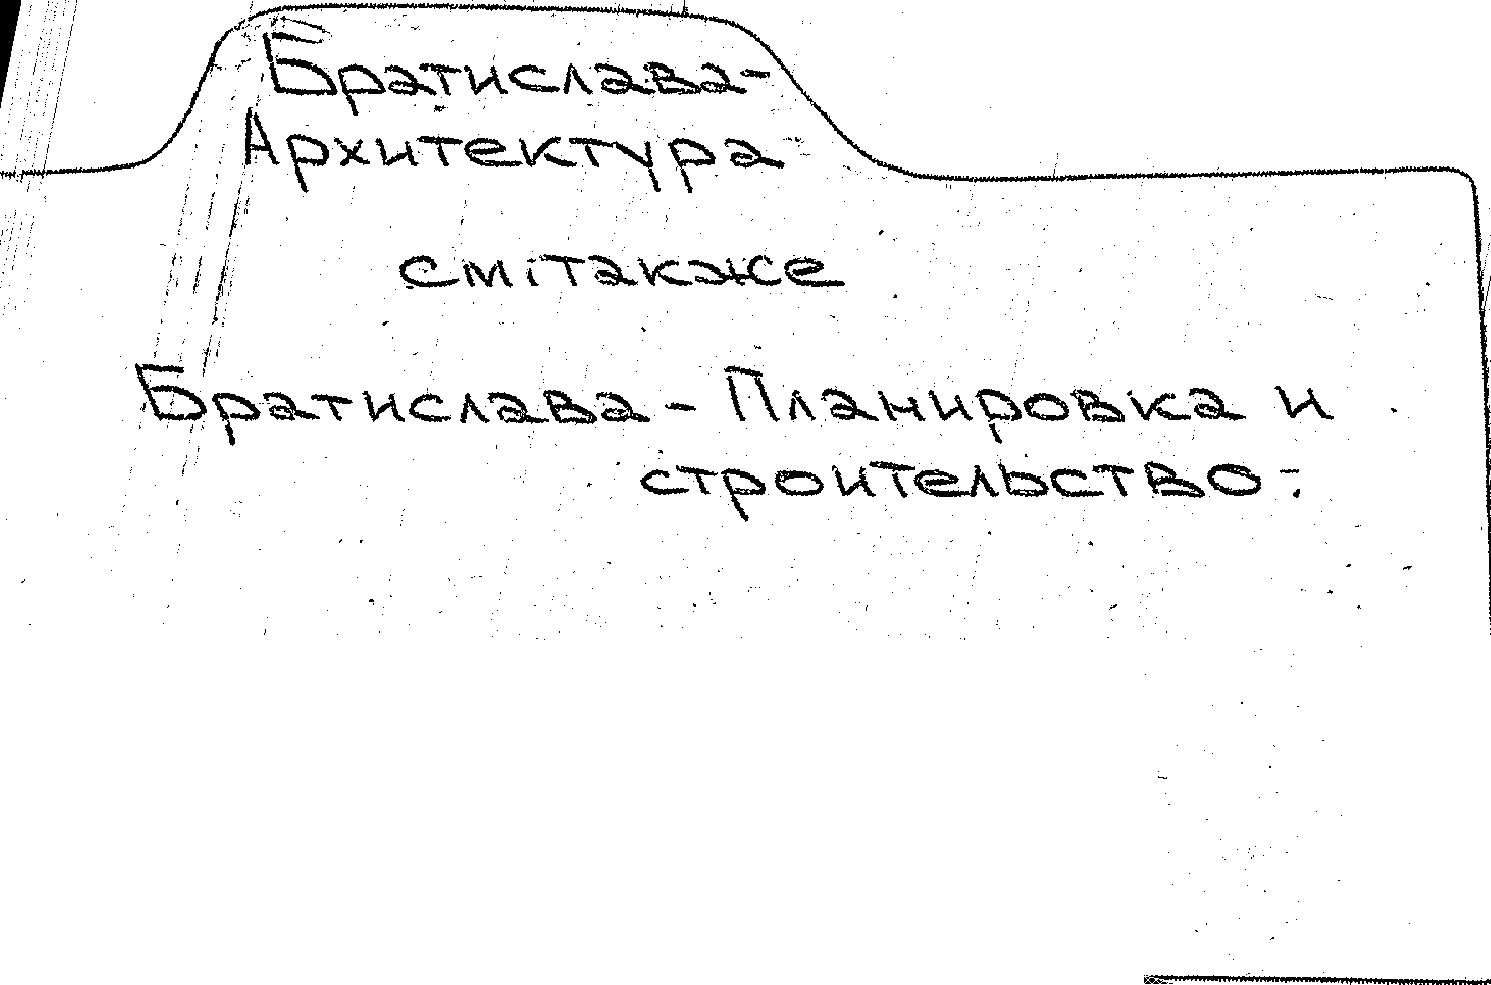 Братислава-
Архитектура
см. также
Братислава - Планировка и
строительство.